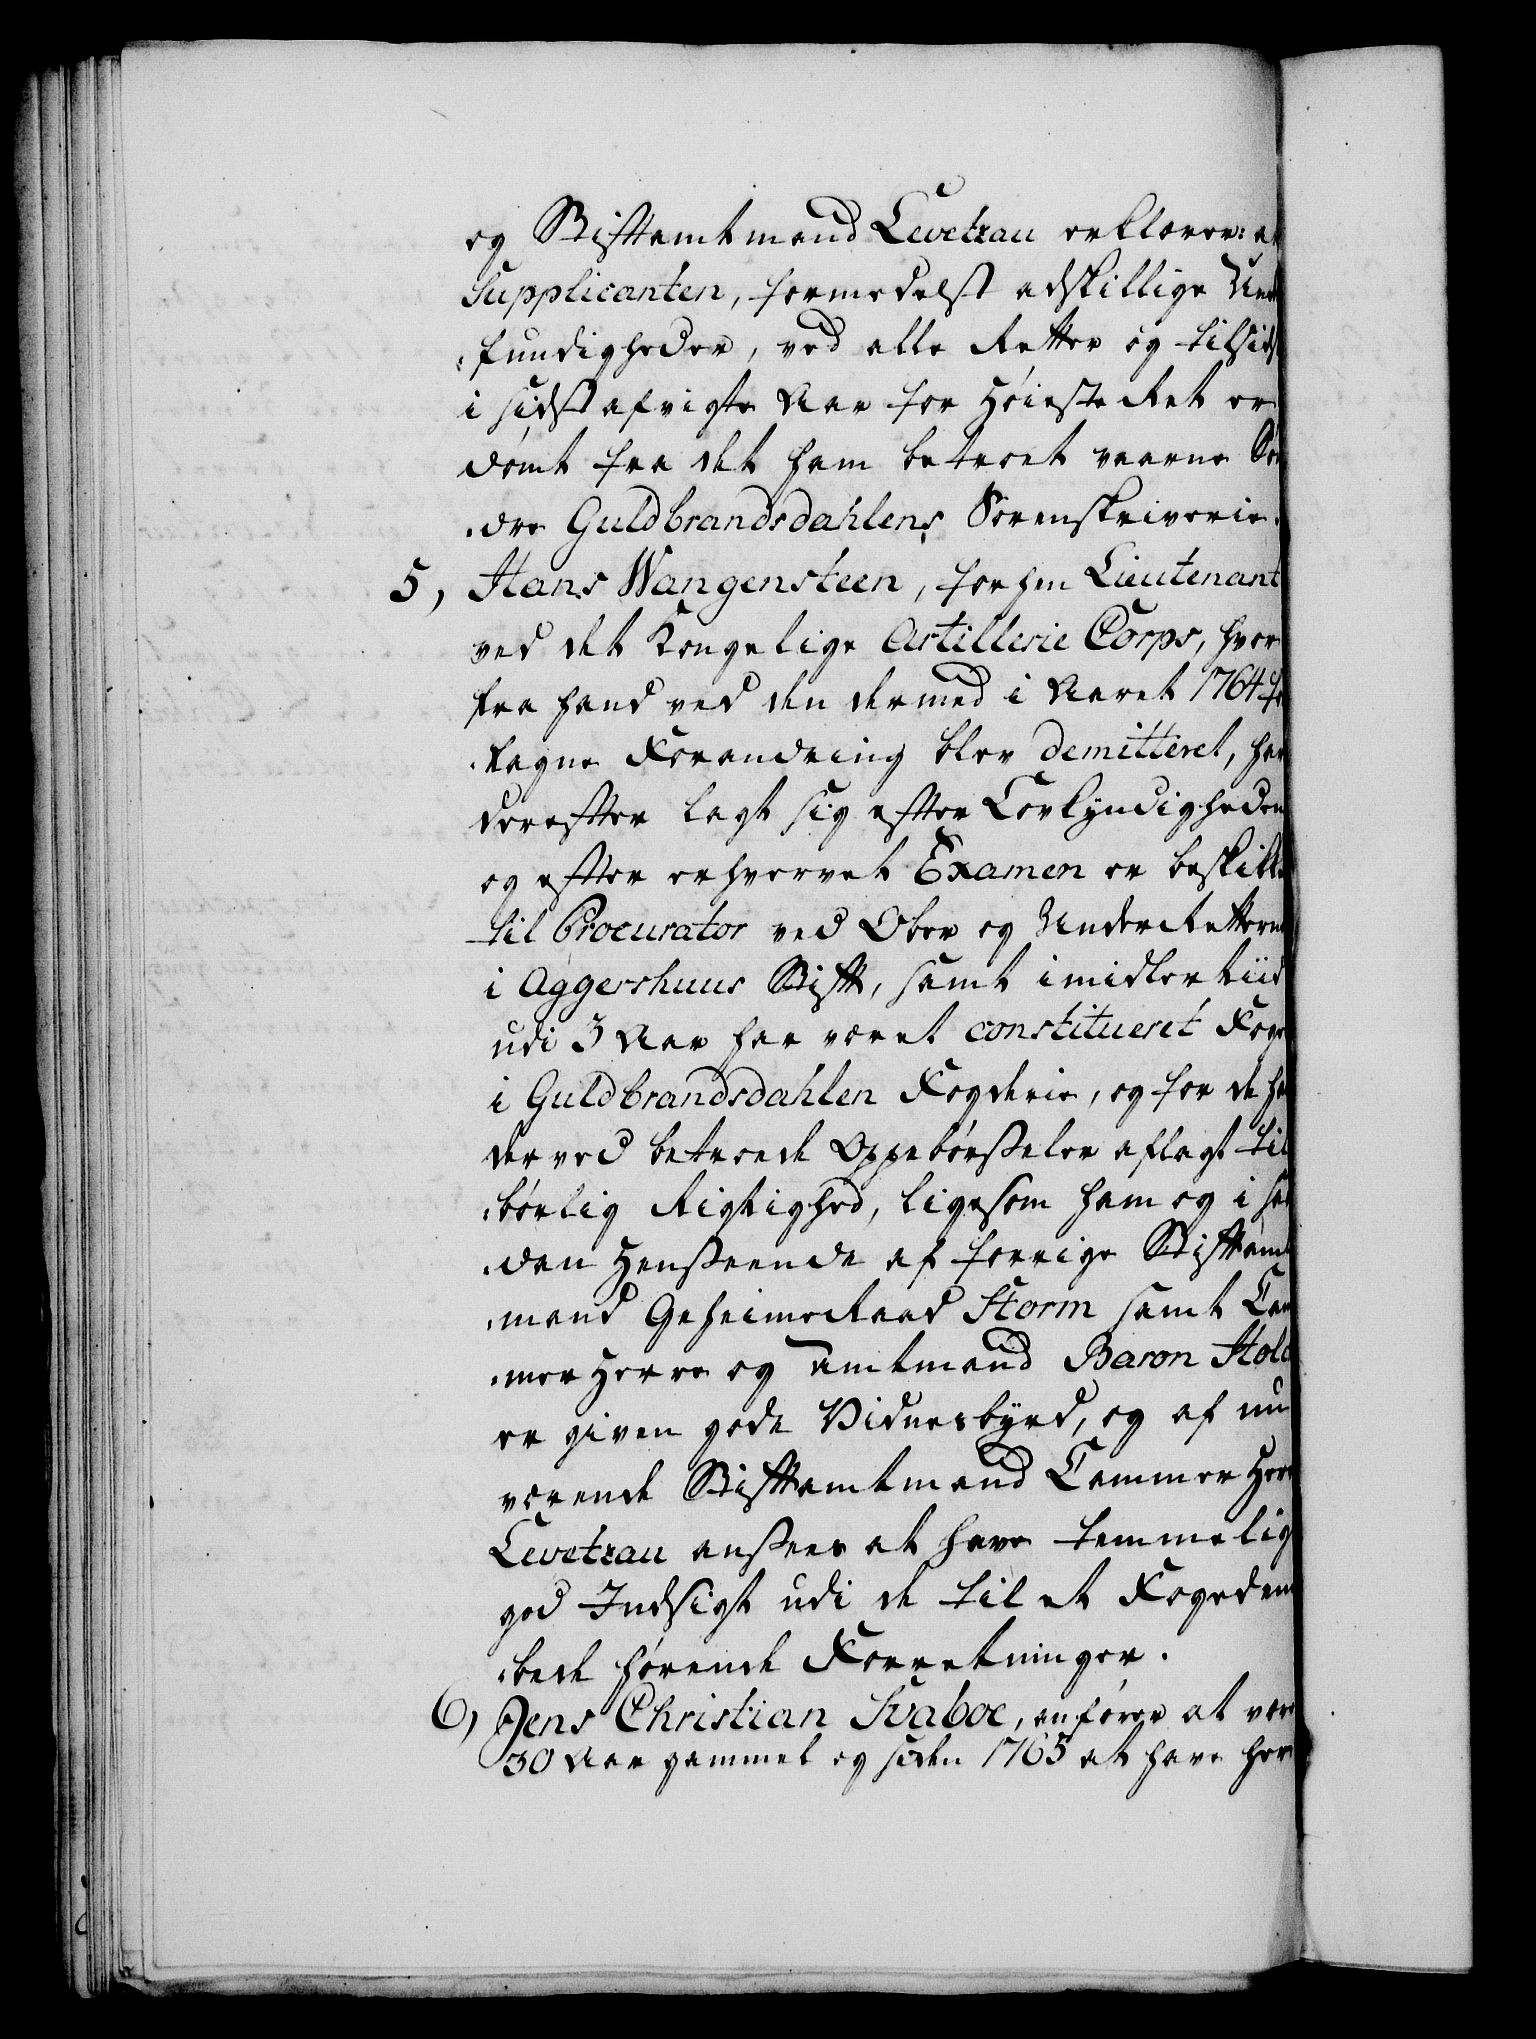 og Stiftamtmand Levetzau erklærer: at
Supplicanten, formedelst adskillige Uret
færdigheder, ved alle Retter og tilsidst
i sidst afvigte Aar for Höieste Ret er
dömt fra det ham betroet været Sön
dre Guldbrandsdahlens Sorenskriverie.
5, Hans Wangensteen, forhen Lieutenant
ved det Kongelige Artillerie Corps, hvor
fra hand ved den dermed i Aaret 1764 fore
tagne Forandring blev demitteret, har
derefter lagt sig efter Lovkyndigheden
og efter erhvervet Examen er beskikket
til Procurator ved Ober og Under Retterne
i Aggershuus Stift, samt imidlertiid
udi 3 Aar har været constitueret Foget
i Guldbrandsdahlen Fogderie, og for de ham
derved betroede Oppebörseler aflagt til
börlig Rigtighed, ligesom ham og i saa
dan Henseende af forrige Stiftamt
mand Geheimeraad Storm samt Cam
mer Herre og Amtmand Baron Holck
er given gode Vidnesbyrd, og af nu
værende Stiftamtmand Cammer Herre
Levetzau ansees at have temmelig
god Indsigt udi de til et Fogedem
bede hörende Forretninger.
6, Jens Christian Svaboe, anförer at være
30 Aar gammel og siden 1765 at have